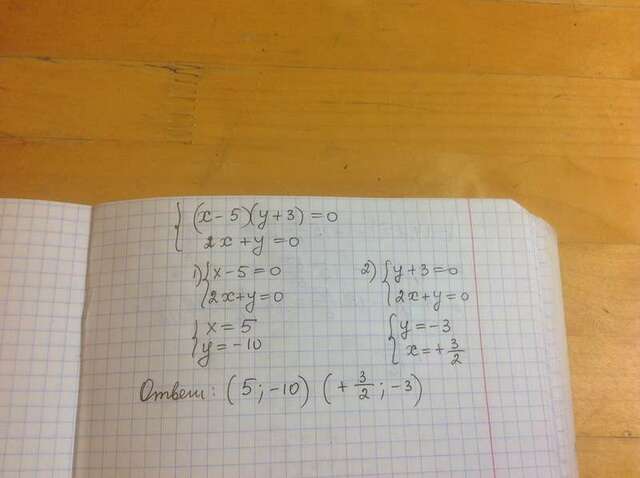 { (x-5)(y+3) = 0
2x+y = 0
1) { x-5=0
2x+y=0
{ x = 5
y = -10
2) { y+3=0
2x+y=0
{ y = -3
x = + 3/2
Ответ: (5; -10) (+ 3/2; -3)